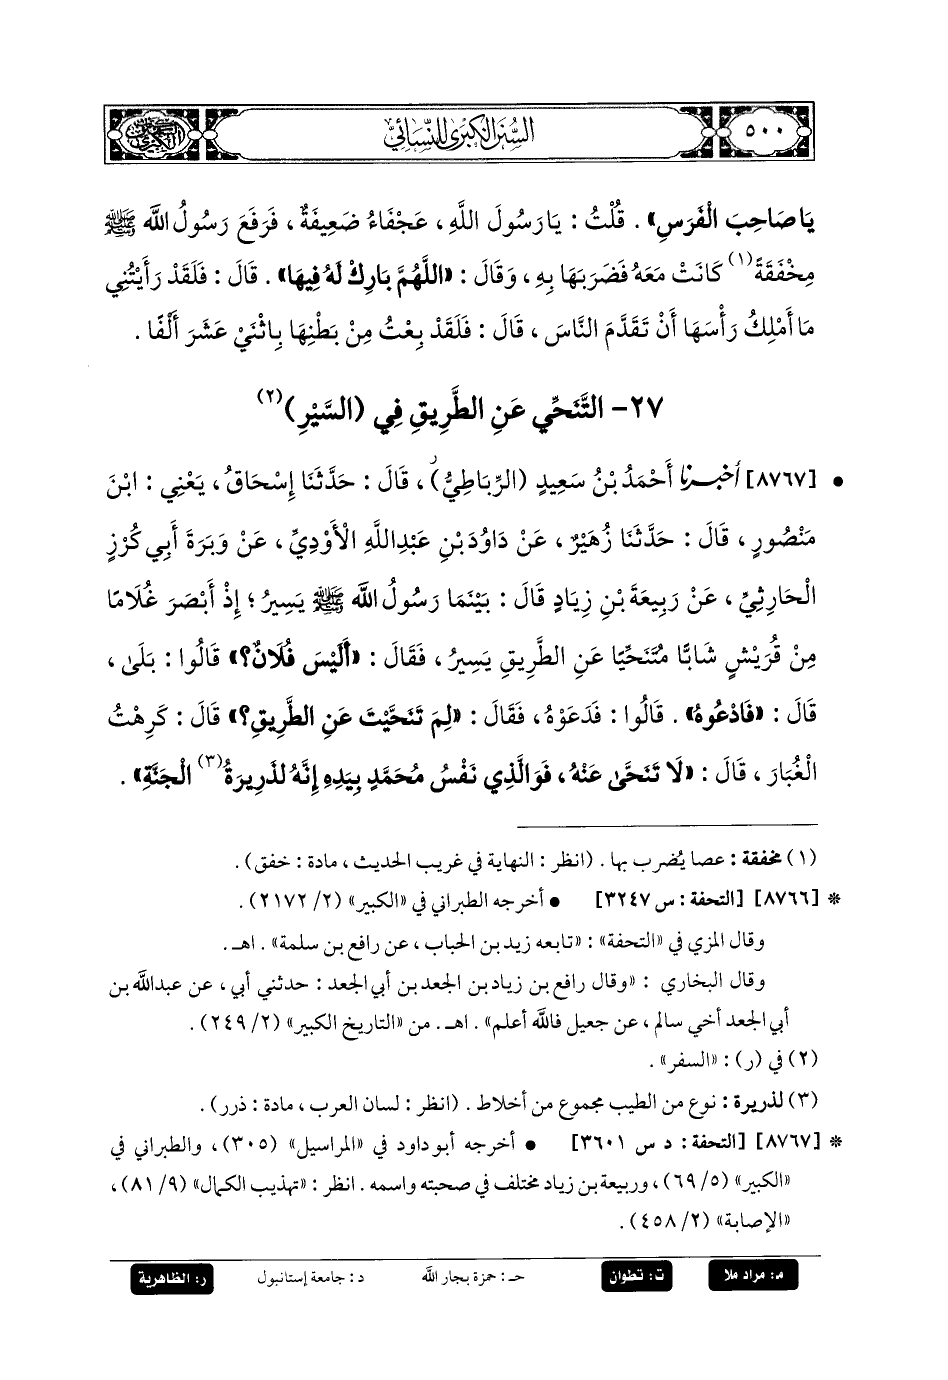 ٥٠٠
السُّنَن الكبرى للنسائي
يَا صَاحِبَ الْفَرَسِ» . قُلْتُ : يَا رَسُولَ اللَّهِ ، عَجْفَاءُ ضَعِيفَةٌ ، فَرَفَعَ رَسُولُ اللَّهِ ﷺ
مِخْفَقَةً(١) كَانَتْ مَعَهُ فَضَرَبَهَا بِهِ ، وَقَالَ : «اللَّهُمَّ بَارِكْ لَهُ فِيهَا» . قَالَ : فَلَقَدْ رَأَيْتُنِي
مَا أَمْلِكُ رَأْسَهَا أَنْ تَقَدَّمَ النَّاسَ ، قَالَ : فَلَقَدْ بِعْتُ مِنْ بَطْنِهَا بِاثْنَيْ عَشَرَ أَلْفًا .
٢٧- التَّنَحِّي عَنِ الطَّرِيقِ فِي (السَّيْرِ)(٢)
• [٨٧٦٧] أَخْبَرَنَا أَحْمَدُ بْنُ سَعِيدٍ (الرِّبَاطِيُّ)ر ، قَالَ : حَدَّثَنَا إِسْحَاقُ ، يَعْنِي : ابْنَ
مَنْصُورٍ ، قَالَ : حَدَّثَنَا زُهَيْرٌ ، عَنْ دَاوُدَ بْنِ عَبْدِاللَّهِ الْأَوْدِيِّ ، عَنْ وَبَرَةَ أَبِي كُرْزٍ
الْحَارِثِيِّ ، عَنْ رَبِيعَةَ بْنِ زِيَادٍ قَالَ : بَيْنَمَا رَسُولُ اللَّهِ ﷺ يَسِيرُ ؛ إِذْ أَبْصَرَ غُلَامًا
مِنْ قُرَيْشٍ شَابًّا مُتَنَحِّيًا عَنِ الطَّرِيقِ يَسِيرُ ، فَقَالَ : «أَلَيْسَ فُلَانٌ؟» قَالُوا : بَلَى ،
قَالَ : «فَادْعُوهُ» . قَالُوا : فَدَعَوْهُ ، فَقَالَ : «لِمَ تَنَحَّيْتَ عَنِ الطَّرِيقِ؟» قَالَ : كَرِهْتُ
الْغُبَارَ ، قَالَ : «لَا تَنَحَّى عَنْهُ ، فَوَالَّذِي نَفْسُ مُحَمَّدٍ بِيَدِهِ إِنَّهُ لَذَرِيرَةُ(٣) الْجَنَّةِ» .
(١) مخفقة : عصا يُضرب بها . (انظر : النهاية في غريب الحديث ، مادة : خفق) .
* [٨٧٦٦] [التحفة : س ٣٢٤٧] • أخرجه الطبراني في «الكبير» (٢/ ٢١٧٢) .
وقال المزي في «التحفة» : «تابعه زيد بن الحباب ، عن رافع بن سلمة» . اهـ .
وقال البخاري : «وقال رافع بن زياد بن الجعد بن أبي الجعد : حدثني أبي ، عن عبدالله بن
أبي الجعد أخي سالم ، عن جعيل فالله أعلم» . اهـ . من «التاريخ الكبير» (٢/ ٢٤٩) .
(٢) في (ر) : «السفر» .
(٣) لذريرة : نوع من الطيب مجموع من أخلاط . (انظر : لسان العرب ، مادة : ذرر) .
* [٨٧٦٧] [التحفة : د س ٣٦٠١] • أخرجه أبو داود في «المراسيل» (٣٠٥) ، والطبراني في
«الكبير» (٥/ ٦٩) ، وربيعة بن زياد مختلف في صحبته واسمه . انظر : «تهذيب الكمال» (٩/ ٨١) ،
«الإصابة» (٢/ ٤٥٨) .
م: مراد ملا ت: تطوان حـ : حمزة بجار الله د : جامعة إستانبول ر: الظاهرية